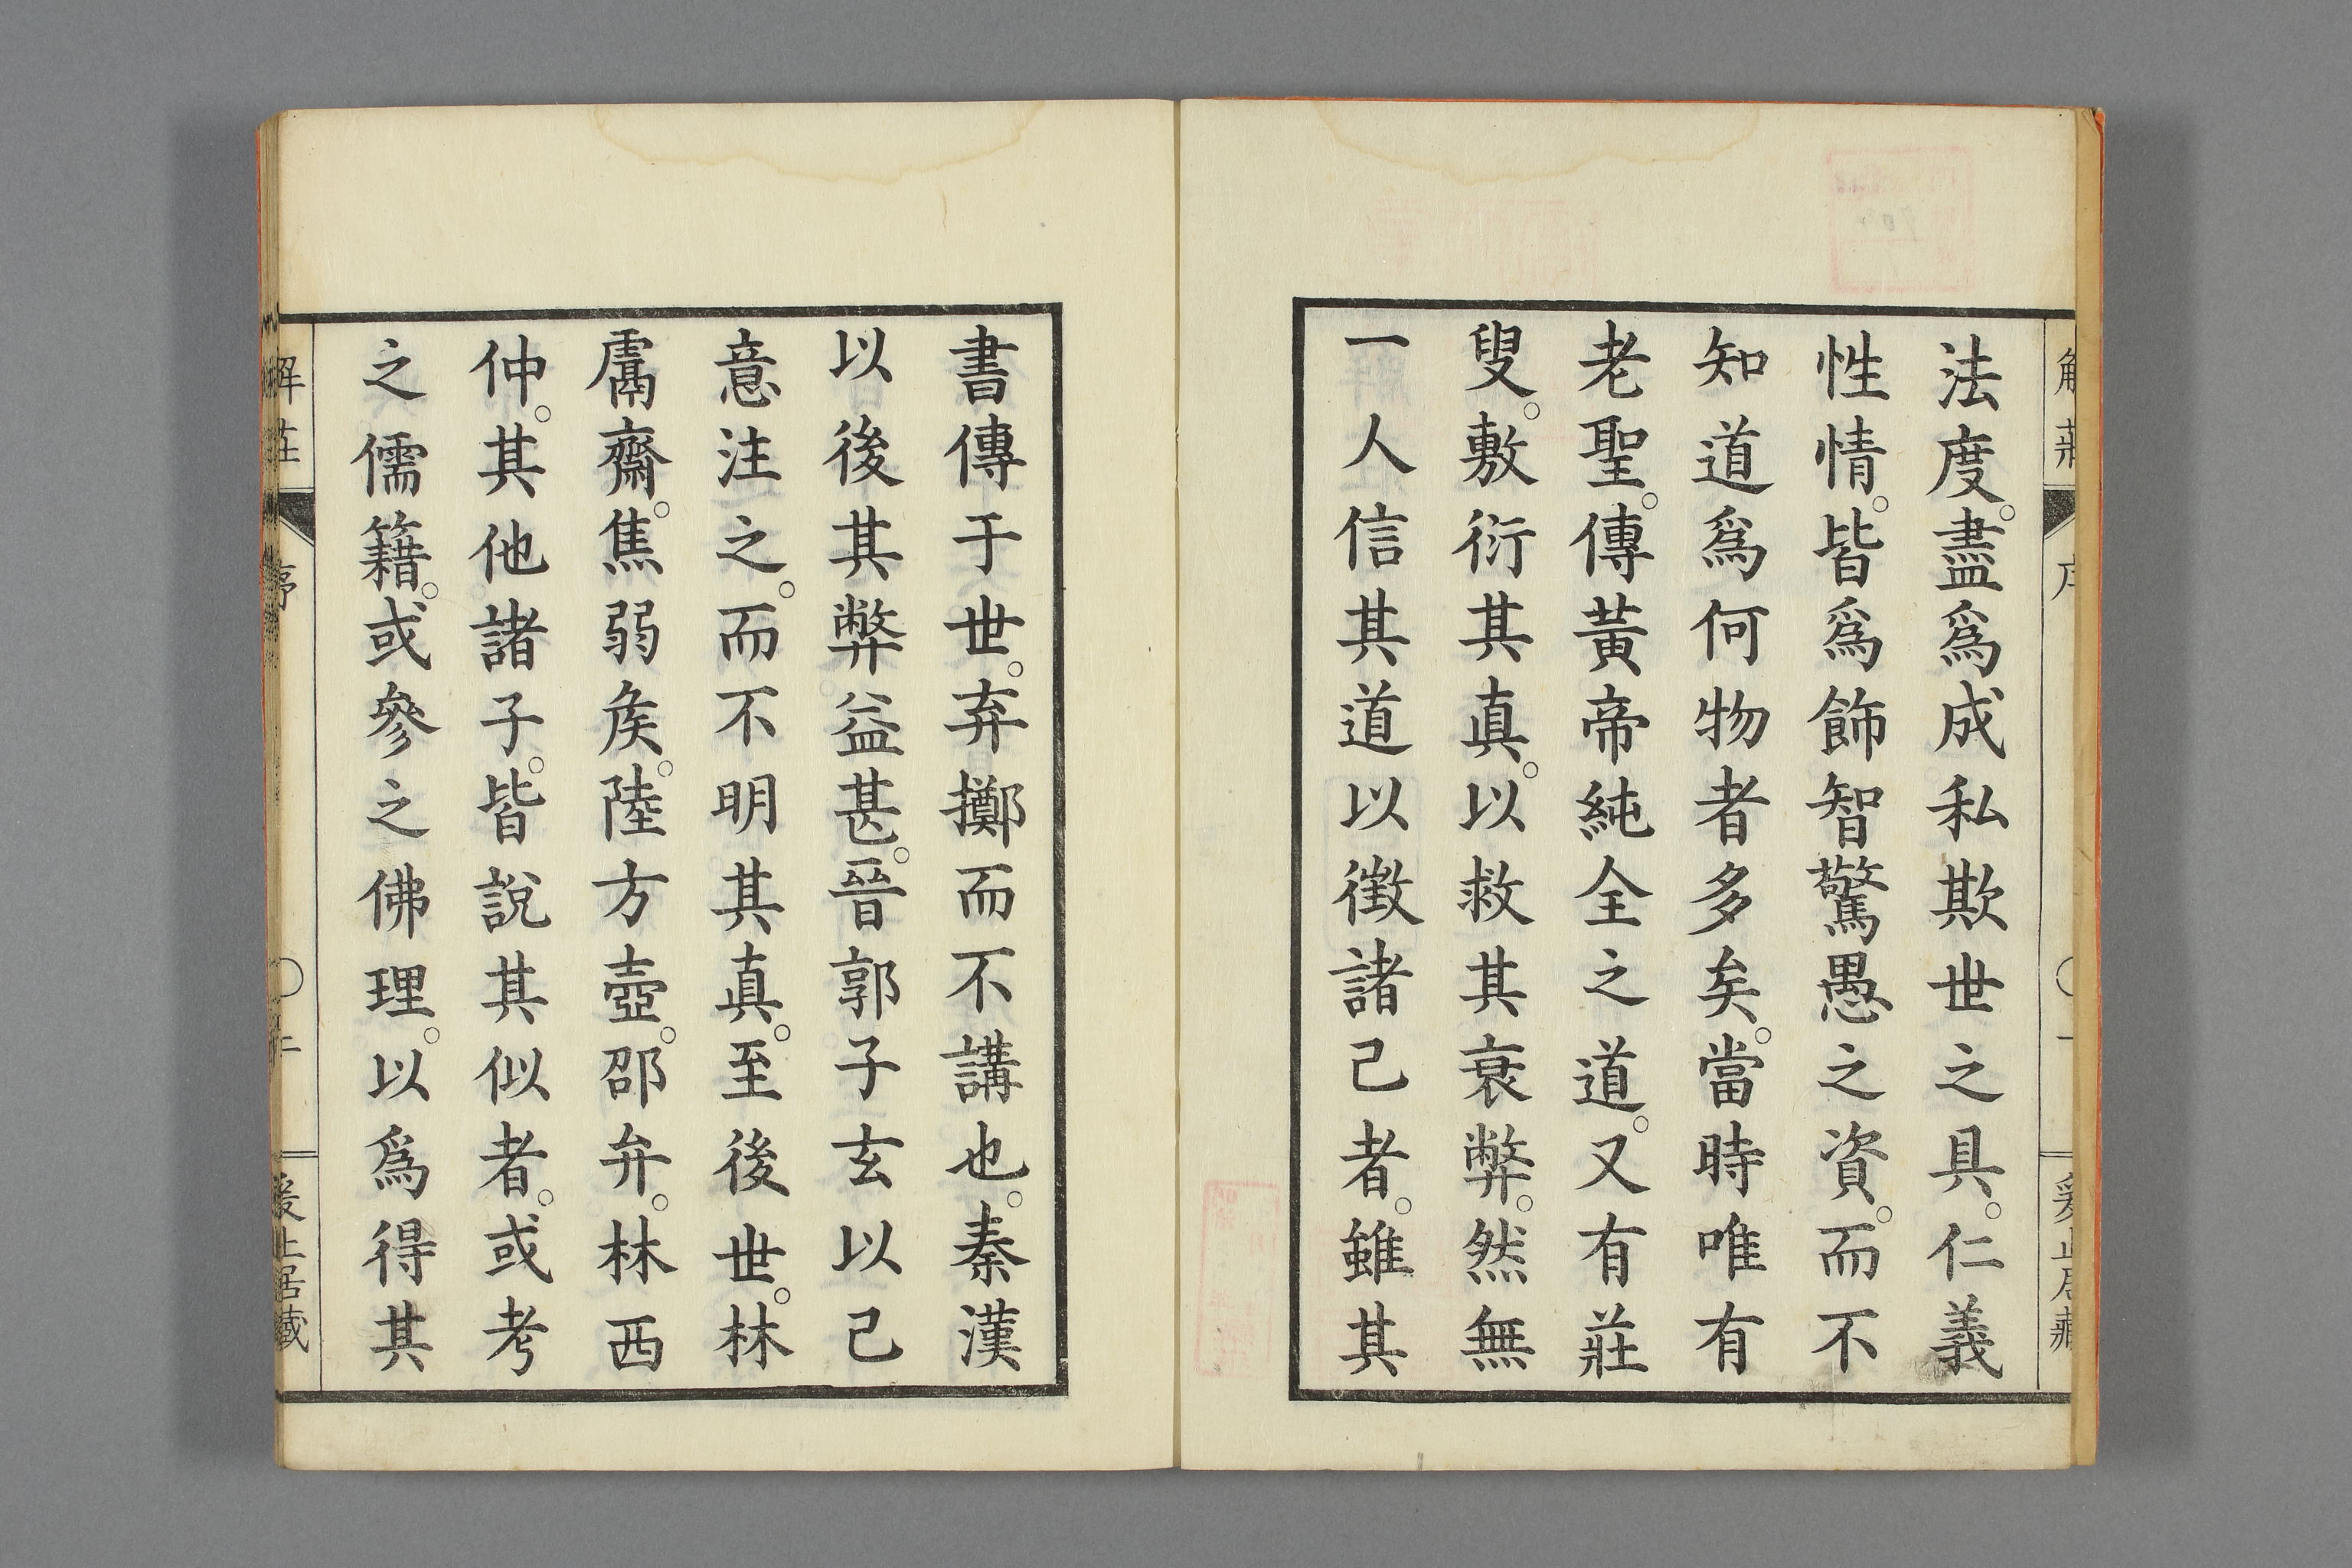 法度。盡爲成私欺世之具。仁義
性情。皆爲飾智驚愚之資。而不
知道爲何物者多矣。當時唯有
老聖。傳黃帝純全之道。又有莊
叟。敷衍其真。以救其衰弊。然無
一人信其道以徵諸己者。雖其
書傳于世。弃擲而不講也。秦漢
以後其弊益甚。晉郭子玄以己
意注之。而不明其真。至後世。林
鬳齋。焦弱矦。陸方壺。邵弁。林西
仲。其他諸子。皆說其似者。或考
之儒籍。或參之佛理。以爲得其
解莊
序